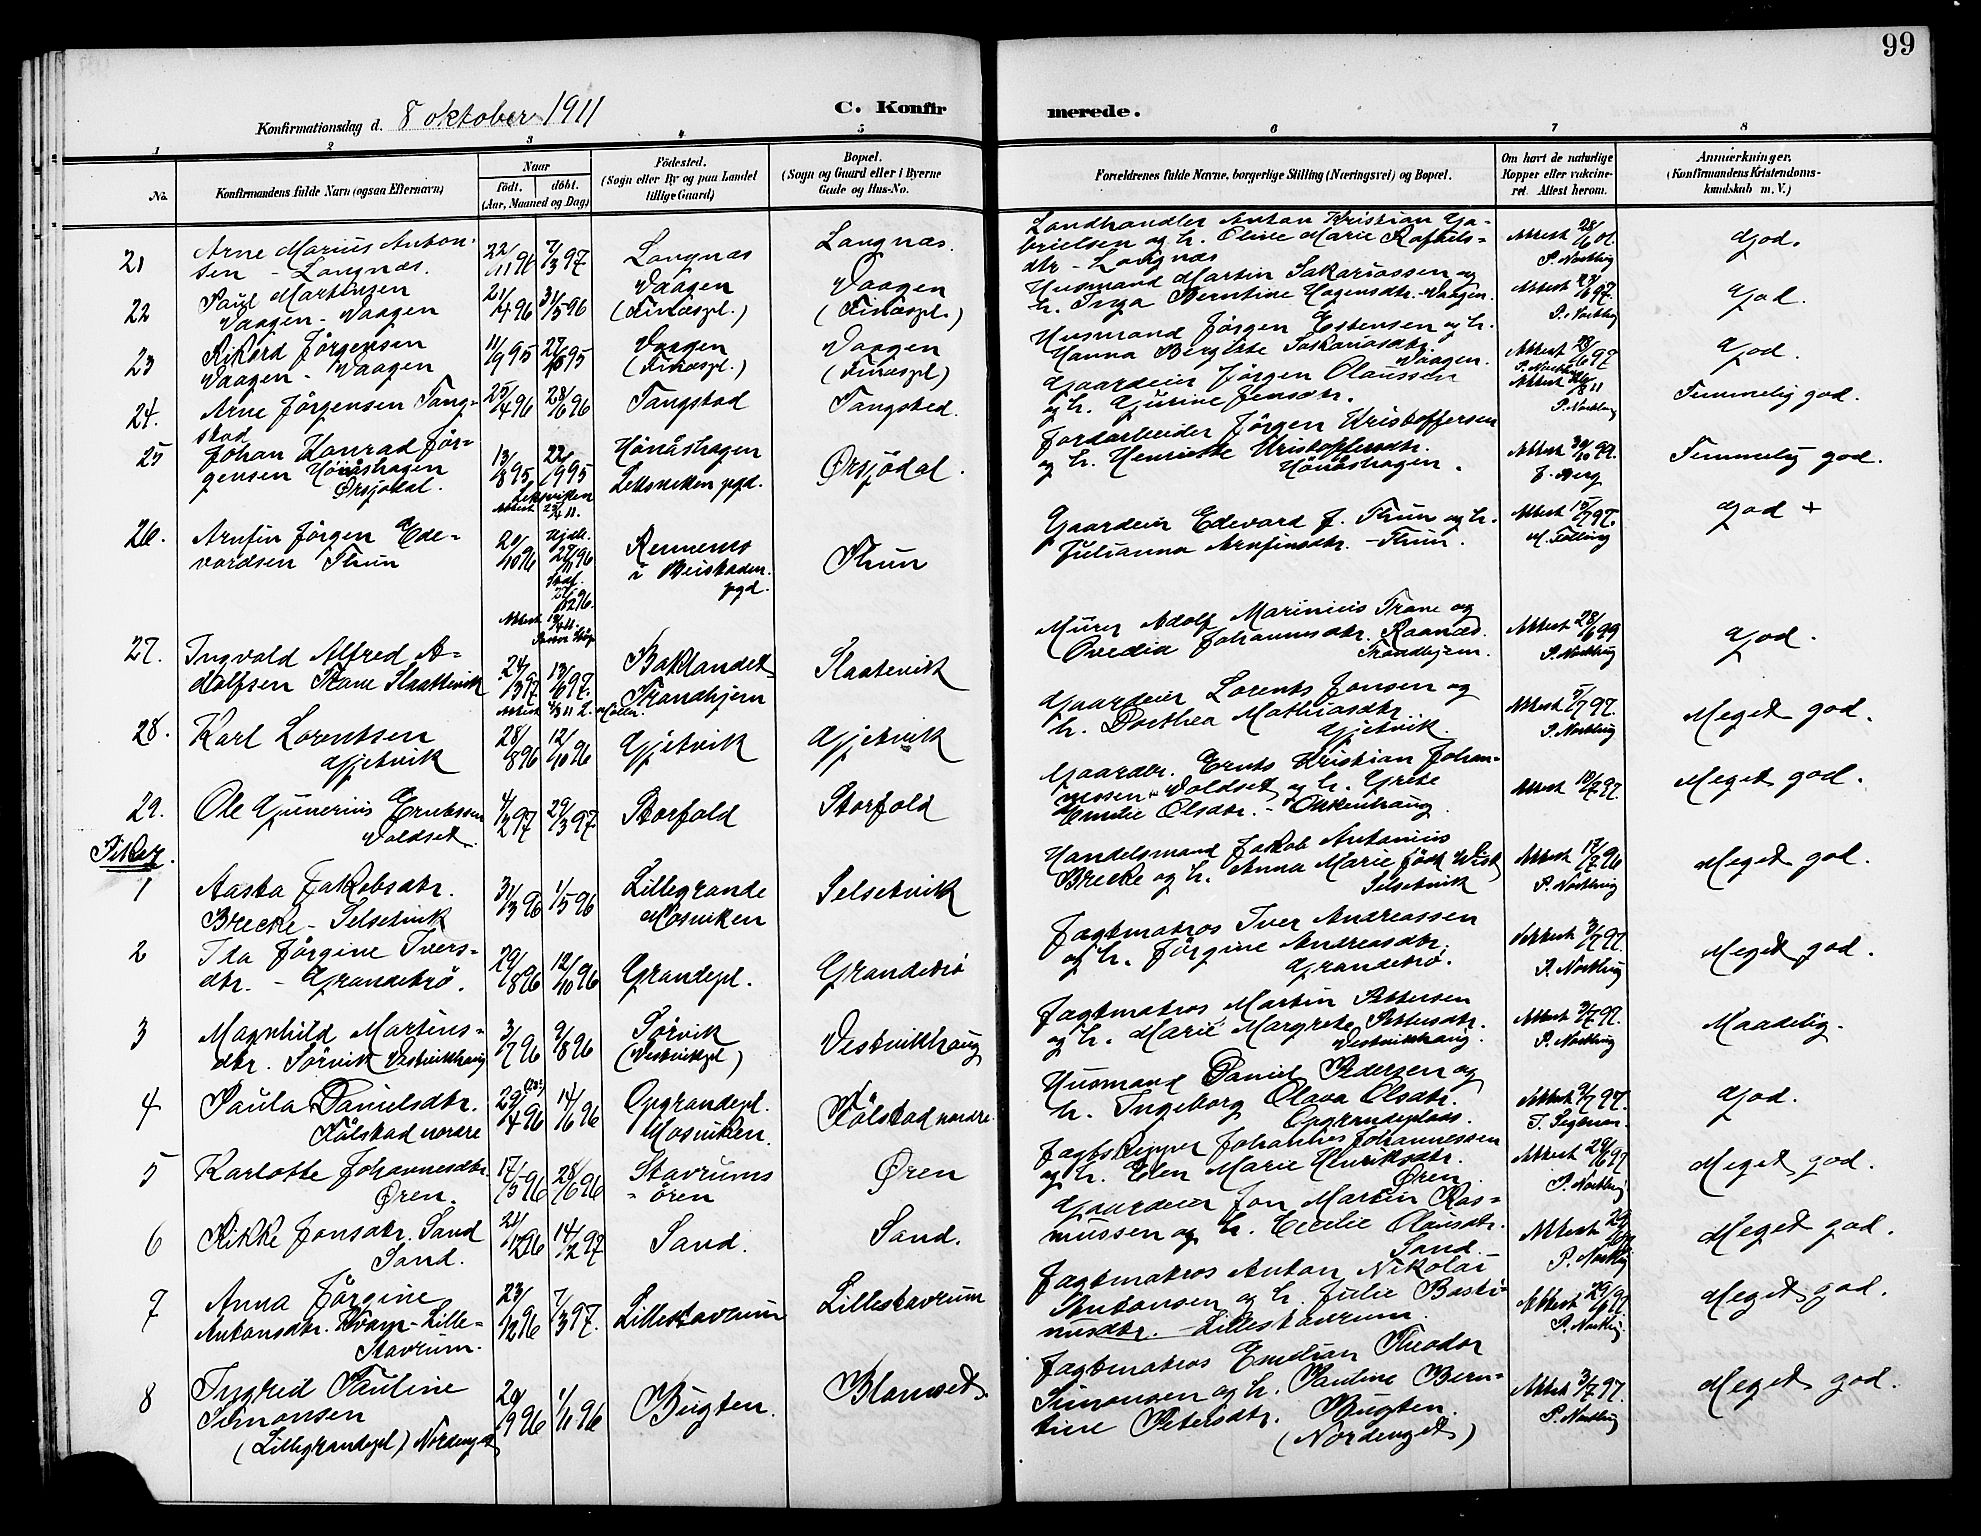 99
Konfirmationsdag d. 8 oktober 1911
C. Konfirmerede.
1 2 3 4 5 6 7 8
No.
Konfirmandens fulde Navn (ogsaa Efternavn)
Naar
födt. döbt.
(Aar, Maaned og Dag)
Födested.
(Sogn eller By og paa Landet
tillige Gaard)
Bopæl.
(Sogn og Gaard eller i Byerne
Gade og Hus-No.
Forældrenes fulde Navne, borgerlige Stilling (Næringsvei) og Bopæl.
Om havt de naturlige
Kopper eller vaccine-
ret. Attest herom.
Anmærkninger.
(Konfirmandens Kristendoms-
kundskab m. V.)
21 Arne Marius Anton-
sen - Langnæs.
22/11 96 7/3 97 Langnæs Langnæs.
Landhandler Anton Kristian Ga-
brielsen og h. Oline Marie Rafaels-
dtr - Langnæs
Attest 28/6 01.
P. Nortvig
God.
22 Paul Martinsen
Vaagen - Vaagen
21/4 96 31/5 96 Vaagen
(Finæspl.)
Vaagen
(Finæspl.)
Husmand Martin Sakariassen og
h. Inga Berntine Hagensdtr. - Vaagen.
P. Nortvig
God.
23 Rikard Jörgensen
Vaagen - Vaagen
11/9 95 Vaagen
(Finæspl.)
Vaagen
(Finæspl)
Husmand Jörgen Estensen og h.
Hanna Bergitte Sakariasdtr.
Vaagen.
Attest 28/6 97
P. Nortvig
God.
24. Arne Jörgensen Tang-
stad
25/4 96 28/6 96 Tangstad Tangsted.
Gaardeier Jörgen Olaussen
og h. Gjurine Jensdtr.
P. Nortvig
Temmelig god.
25 Johan Konrad Jör-
gensen Hönåshagen
Örsjödal.
13/8 95 22/9 95
Leksviken
Attest
Hönåshagen
Leksviken pgd.
Ørsjödal.
Jordarbeider Jörgen Kristoffersen
og h. Henriette Kristoffersdtr.
Hönåshagen.
Attest 30/10 99.
J. Berg
Temmelig god.
26. Arnfin Jörgen Ede-
vardsen Thun
20/10 96 Hjdb.
Attest
i Beistaden
pgd.
Thun
Gaardeier Edevard J. Thun og h.
Julianna Arnfinsdtr. - Thun.
Attest 15/7 97.
M. Fölling
god +
27. Ingvald Alfred A-
dolfsen Trane Slaattevik
24/3 97 13/6 97.
Attest
Baklandet
Trondhjem
Slaatevik
Murer Adolf Marinius Trane og
Ovedia Johannesdtr. Raanæs.
Trondhjem.
Attest 28/6 99
P. Nortvig
God.
28. Karl Lorentsen
Gjetvik
28/8 96 12/10 96 Gjetvik Gjetvik
Gaardeier Lorents Jonsen og
h. Dorthea Mathiasdtr.
Gjetvik.
Attest 5/7 97.
P. Nortvig
Meget god.
29. Ole Gunerius Erntssen
Voldset
4/2 97 29/3 97. Storfold Storfold
Gaardbr. Ernts Kristian Johan-
nessen Voldset og h. Grete
Emilie Olsdtr. - Okkenhaug.
Attest 10/7 97.
Meget god.
Piker.
1 Aasta Jakobsdtr.
Brecke - Selsetvik
31/3 96 1/5 96 Lillegrande
Mosviken
Selsetvik
Handelsmand Jakob Antonius
Brecke og h. Anna Marie född Wist
Selsetvik
Attest 17/7 96
P. Nortvig
Meget god.
2 Ida Jörgine Ivers-
dtr. - Grandetrö.
29/8 96 12/10 96 Grandepl. Grandetrö
Jagtmatros Iver Andreassen
og h. Jörgine Andreasdtr.
Grandetrö.
Attest 3/7 97.
P. Nortvig
Meget god.
3 Magnhild Martins-
dtr. Sörvik Vestvikhaug
3/7 96 9/8 96 Sörvik
(Vestvikpl)
Vestvikhaug
Jagtmatros Martin Pettersen
og h. Marie Margrete Pettersdtr.
Vestvikhaug.
Attest 3/7 97.
P. Nortvig
Maadelig.
4 Paula Danielsdtr.
Fölstad nordre
29/4 96 14/6 96 Opgrandepl.
Mosviken.
Fölstad nordre.
Husmand Daniel Pedersen og
h. Ingeborg Olava Olsdtr.
Opgrandeplads.
Attest 9/7 97.
God.
5 Karlotte Johannesdtr.
Øren.
17/5 96 28/6 96 Stavrums
- ören
Øren
Jagtskipper Johannes Johannessen
og h. Elen Marie Henriksdtr.
Øren.
Attest 29/6 97
P. Nortvig
Meget god.
6 Rikke Jonsdtr. Sand
Sand.
14/2 97 Sand. Sand.
Gaardeier Jon Martin Ras-
mussen og h. Cecilie Olausdtr.
Sand. -
Attest
P. Nortvig
Meget god.
7 Anna Jörgine
Antonsdtr. Kvam - Lille-
Stavrum.
23/12 96 7/3 97. Lillestavrum Lillestavrum
Jagtmatros Anton Nikolai
Antonsen og h. Julie Basti-
nusdtr. - Lillestavrum.
Attest 29/6 97.
P. Nortvig.
Meget god.
8 Ingrid Pauline
Simonsen
(Lillegrandepl) Nordenget
20/9 96 1/11 96 Bugten. Blomset.
Jagtmatros Emelian Theodor
Simonsen og h. Pauline Bern-
tine Petersdtr. Bugten.
(Nordenget)
Attest 3/7 97.
P. Nortvig
Meget god.